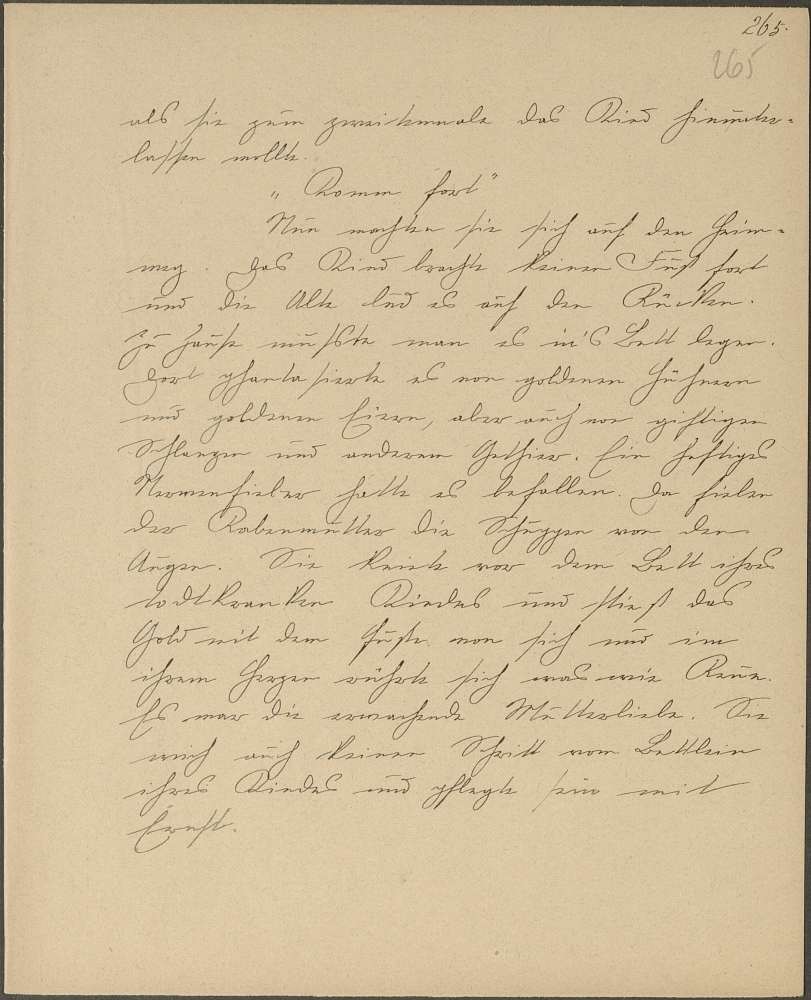 265.
265
als sie zum zweitenmale das Kind hinunter-
lassen wollte.
„Komm fort“
Nun machten sie sich auf den Heim-
weg. Das Kind brachte keinen Fuß fort
und die Alte lud es auf den Rücken.
Zu Hause mußste man es in's Bett legen.
Dort phantasierte es von goldenen Hühnern
und goldenen Eiern, aber auch von giftigen
Schlangen und anderem Gethier. Ein heftiges
Nervenfieber hatte es befallen. Da fielen
der Rabenmutter die Schuppen von den
Augen. Sie kniete vor dem Bett ihres
todtkranken Kindes und stieß das
Gold mit dem Fuße von sich und im
ihrem Herzen rührte sich was wie Reue.
Es war die erwachende Mutterliebe. Sie
wich auch keinen Schritt vom Bettlein
ihres Kindes und pflegte sein mit
Ernst.